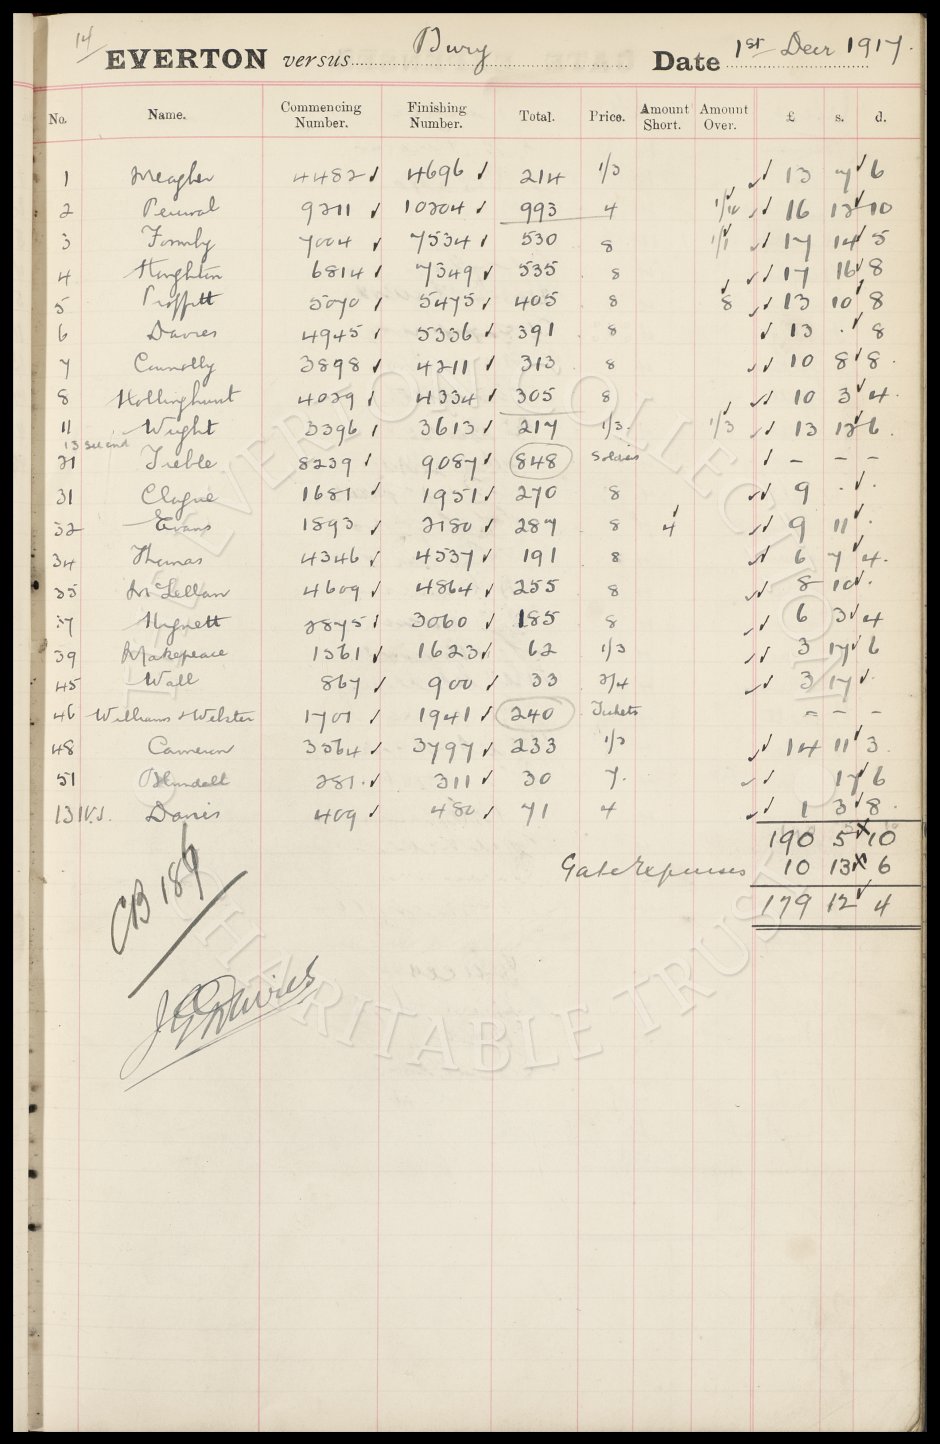 14/
EVERTON versus Bury Date 1st Decr 1917.
No. Name. Commencing Number. Finishing Number. Total. Price. Amount Short. Amount Over. £ s. d.
1 Meagher 4482 ✓ 4696 ✓ 214 1/3 ✓✓ 13 7 ✓ 6
2 Percival 9211 ✓ 10204 ✓ 993 4 1/10 ✓ ✓✓ 16 12 ✓ 10
3 Formby 7004 ✓ 7534 ✓ 530 8 1/1 ✓ ✓✓ 17 14 ✓ 5
4 Houghton 6814 ✓ 7349 ✓ 535 8 ✓✓ 17 16 ✓ 8
5 Proffitt 5070 ✓ 5475 ✓ 405 8 8 ✓ ✓✓ 13 10 ✓ 8
6 Davies 4945 ✓ 5336 ✓ 391 8 ✓ 13 . ✓ 8
7 Connolly 3898 ✓ 4211 ✓ 313 8 ✓✓ 10 8 ✓ 8
8 Hollinghurst 4029 ✓ 4334 ✓ 305 8 ✓✓ 10 3 ✓ 4
11 Wight 3396 ✓ 3613 ✓ 217 1/3 1/3 ✓ ✓✓ 13 12 ✓ 6
13 second
21 Treble 8239 ✓ 9087 ✓ 848 Soldiers ✓ – – –
31 Clague 1681 ✓ 1951 ✓ 270 8 ✓✓ 9 . ✓ .
32 Evans 1893 ✓ 2180 ✓ 287 8 4 ✓ ✓✓ 9 11 ✓ .
34 Thomas 4346 ✓ 4537 ✓ 191 8 ✓✓ 6 7 ✓ 4
35 McLellan 4609 ✓ 4864 ✓ 255 8 ✓✓ 8 10 ✓ .
37 Hignett 2875 ✓ 3060 ✓ 185 8 ✓✓ 6 3 ✓ 4
39 Makepeace 1561 ✓ 1623 ✓ 62 1/3 ✓✓ 3 17 ✓ 6
45 Wall 867 ✓ 900 ✓ 33 2/4 ✓✓ 3 17 ✓ .
46 Williams & Webster 1701 ✓ 1941 ✓ 240 Tickets – – –
48 Cameron 3564 ✓ 3797 ✓ 233 1/3 ✓✓ 14 11 ✓ 3
51 Blundell 281 ✓ 311 ✓ 30 7. ✓✓ 17 ✓ 6
131 V.S. Davies 409 ✓ 480 ✓ 71 4 ✓✓ 1 3 ✓ 8
190 5 10
Gate Expenses 10 13 6
179 12 ✓ 4
CB 186
J E Davies
THE EVERTON COLLECTION
CHARITABLE TRUST